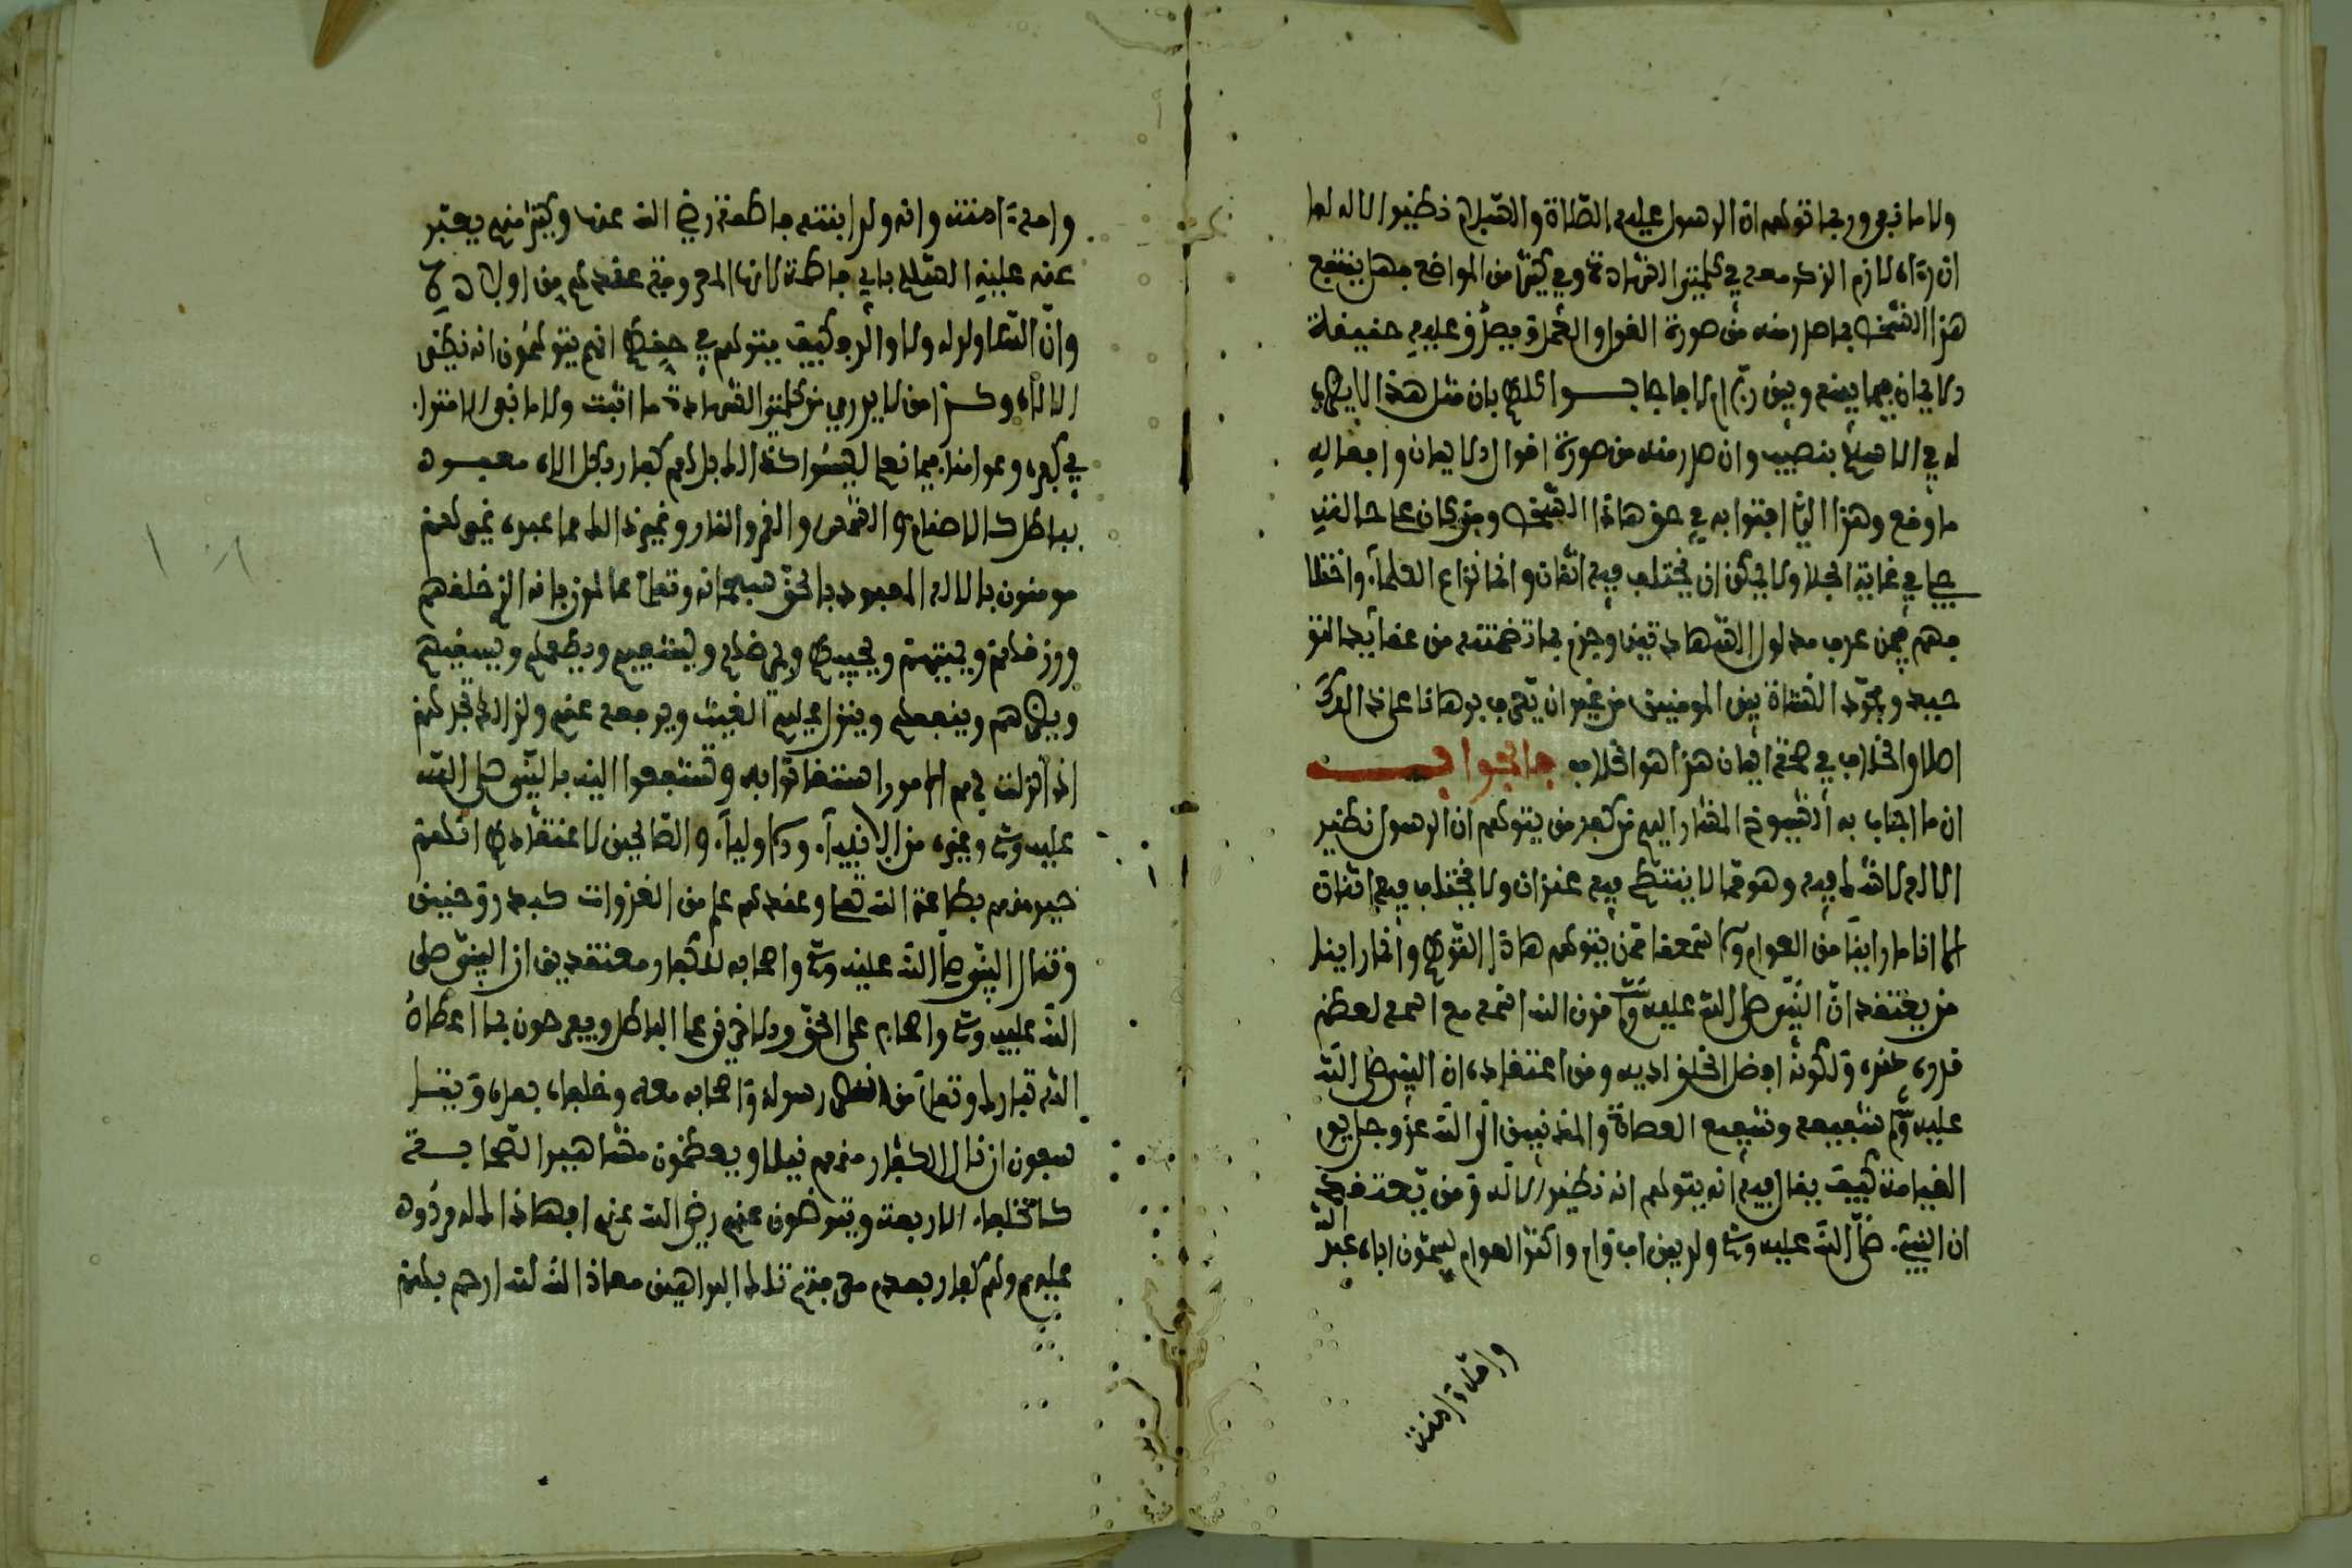 ولا ما نفى وربما توهم ان الرسول عليه الصلاة والسلام نظير الاله لما
ان رءاه لازم الذكر معه في كلمتي الشهادة وفي كثير من المواضع فهل ينتفع
هذا الشخص بما صدر منه من صورة القول والعمل ويصدق عليه حقيقة
الايمان فيما بينه وبين ربه ام لا فاجابوا كلهم بان مثل هذا لا يضرب
له في الاسلام بنصيب وان صدر منه من صورة اقوال الايمان وافعاله
ما وقع وهذا الذي افتوا به في حق هذا الشخص ومن كان على حالته
جلي في غاية الجلاء ولا يمكن ان يختلف فيه اثنان وانما نزاع العلماء واختلا
فهم فيمن عرف مدلول الشهادتين وجزم بما تضمنته من عقائد التو
حيد وتردد النشاة بين المومنين من غير ان يعرف برهانا على ذالك
اصلا والخلاف في صحة ايمان هذا هو الخلاف فالجواب
ان ما اجاب به الشيوخ المشار اليهم من كفر من يتوهم ان الرسول نظير
الاله لا شك فيه وهو مما لا ينتطح فيه عنزان ولا يختلف فيه اثنان
الا انا ما راينا من العوام ولا سمعنا ممن يتوهم هاذا التوهم وانما راينا
من يعتقد ان النبي صلى الله عليه وسلم قرن الله اسمه مع اسمه لعظم
قدره عنده ولكونه افضل الخلق لديه ومن اعتقاده ان النبي صلى الله
عليه وسلم شفيعه وشفيع العصاة والمذنبين الى الله عز وجل يوم
القيامة فكيف يقال فيه انه يتوهم انه نظير الاله ومن يعتقد
ان النبي صلى الله عليه وسلم ولد بين اب وام واكثر العوام يسمون اباه عبد الله
وامه ءامنة
وامه ءامنة وانه ولد ابنته فاطمة رضي الله عنها وكثير منهم يعبر
عنه عليه السلام بابي فاطمة لانها المعروفة عندهم من اولاده
وان الله لا ولد له ولا والد فكيف يتوهم في حقهم انهم يتوهمون انه نظير
الاله وكذا من لا يدري من كلمتي الشهادة ما اثبت ولا ما نفى لا امترا
في كفره وعوامنا فيما نعلم ليسوا كذالك بل لهم كفار وكل اله معبود
بباطل كالاصنام والشمس والقمر والنار وغير ذالك مما عبد غيرهم
مومنون بالاله المعبود بالحق سبحانه وتعالى عالمون بانه الذي خلقهم
ورزقهم ويميتهم ويحييهم ويمرضهم ويشفيهم ويطعمهم ويسقيهم
ويضرهم وينفعهم وينزل عليهم الغيث ويرفعه عنهم ولذالك تجدهم
اذا نزلت بهم الامور استغاثوا به وتشفعوا اليه بالنبي صلى الله
عليه وسلم وغيره من الانبياء والاولياء والصالحين لاعتقادهم انهم
خير منهم بطاعة الله تعالى وعندهم علم من الغزوات كبدر وحنين
وقتال النبي صلى الله عليه وسلم واصحابه للكفار ومعتقدين ان النبي صلى
الله عليه وسلم واصحابه على الحق والاخرين على الباطل ويفرحون بما اعطاه
الله تبارك وتعالى من النصر رسوله واصحابه معه وخلفاءه بعده ويتا
سفون ان نال الكفار منهم نيلا ويعظمون مشاهير الصحابة
كالخلفاء الاربعة ويترضون عنهم رضي الله عنهم افهاذا اله مردود
عليهم ولهم كفار بعدم معرفتهم تلك البراهين معاذ الله لله ارحم بهم